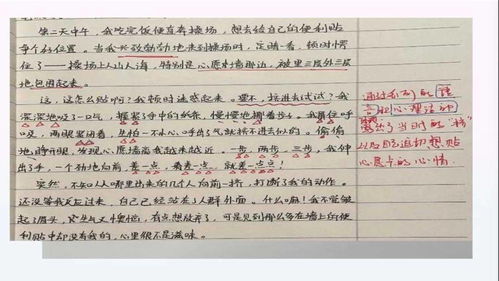 第二天中午，我吃完饭便直奔操场，想去给自己的便利贴
争个好位置。当我兴致勃勃地来到操场时，定睛一看，顿时愣
住了——操场上人山人海，特别是心愿墙那边，被里三层外三层
地包围起来。
这，这怎么贴啊？我顿时迷惑起来。要不，挤进去试试？我
深深地吸了一口气，握紧了手中的纸条，慢慢地挪着步。我屏住呼
吸，两眼紧闭着，生怕一不小心呼出了气就挤不进去似的。偷偷
地睁开眼，发现心愿墙离我越来越近，一步，两步，三步，我伸
出手，一个劲地向前，差一点，差一点，就差一点点！
突然，不知从哪里出来的几个人向前一挤，打断了我的动作。
还没等我反应过来，自己已经站在人群外面。什么嘛！我不觉皱
起了眉头，又生气又懊恼，有点想放弃了，可是见到那么多在墙上的便
利贴中却没有我的，心里很不是滋味。
通过
心理活动
当时的“挤”
以及自己迫切想贴
心愿卡的心情。